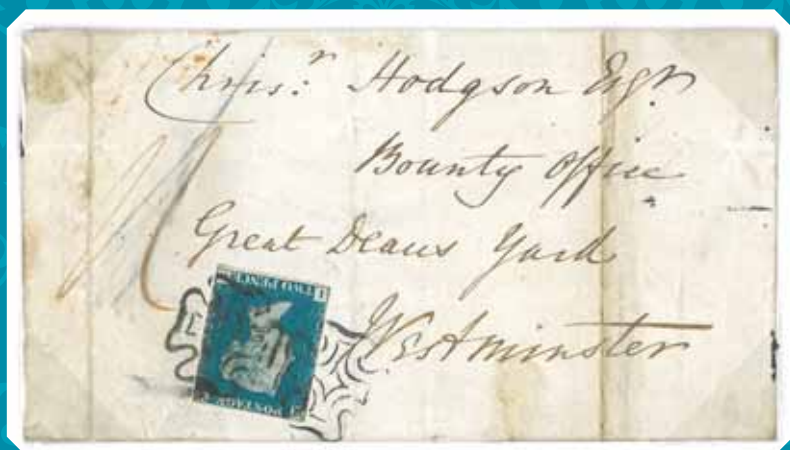 Chris:r Hodgson Esqr
Bounty Office
Great Deans Yard
Westminster
POSTAGE
TWO PENCE